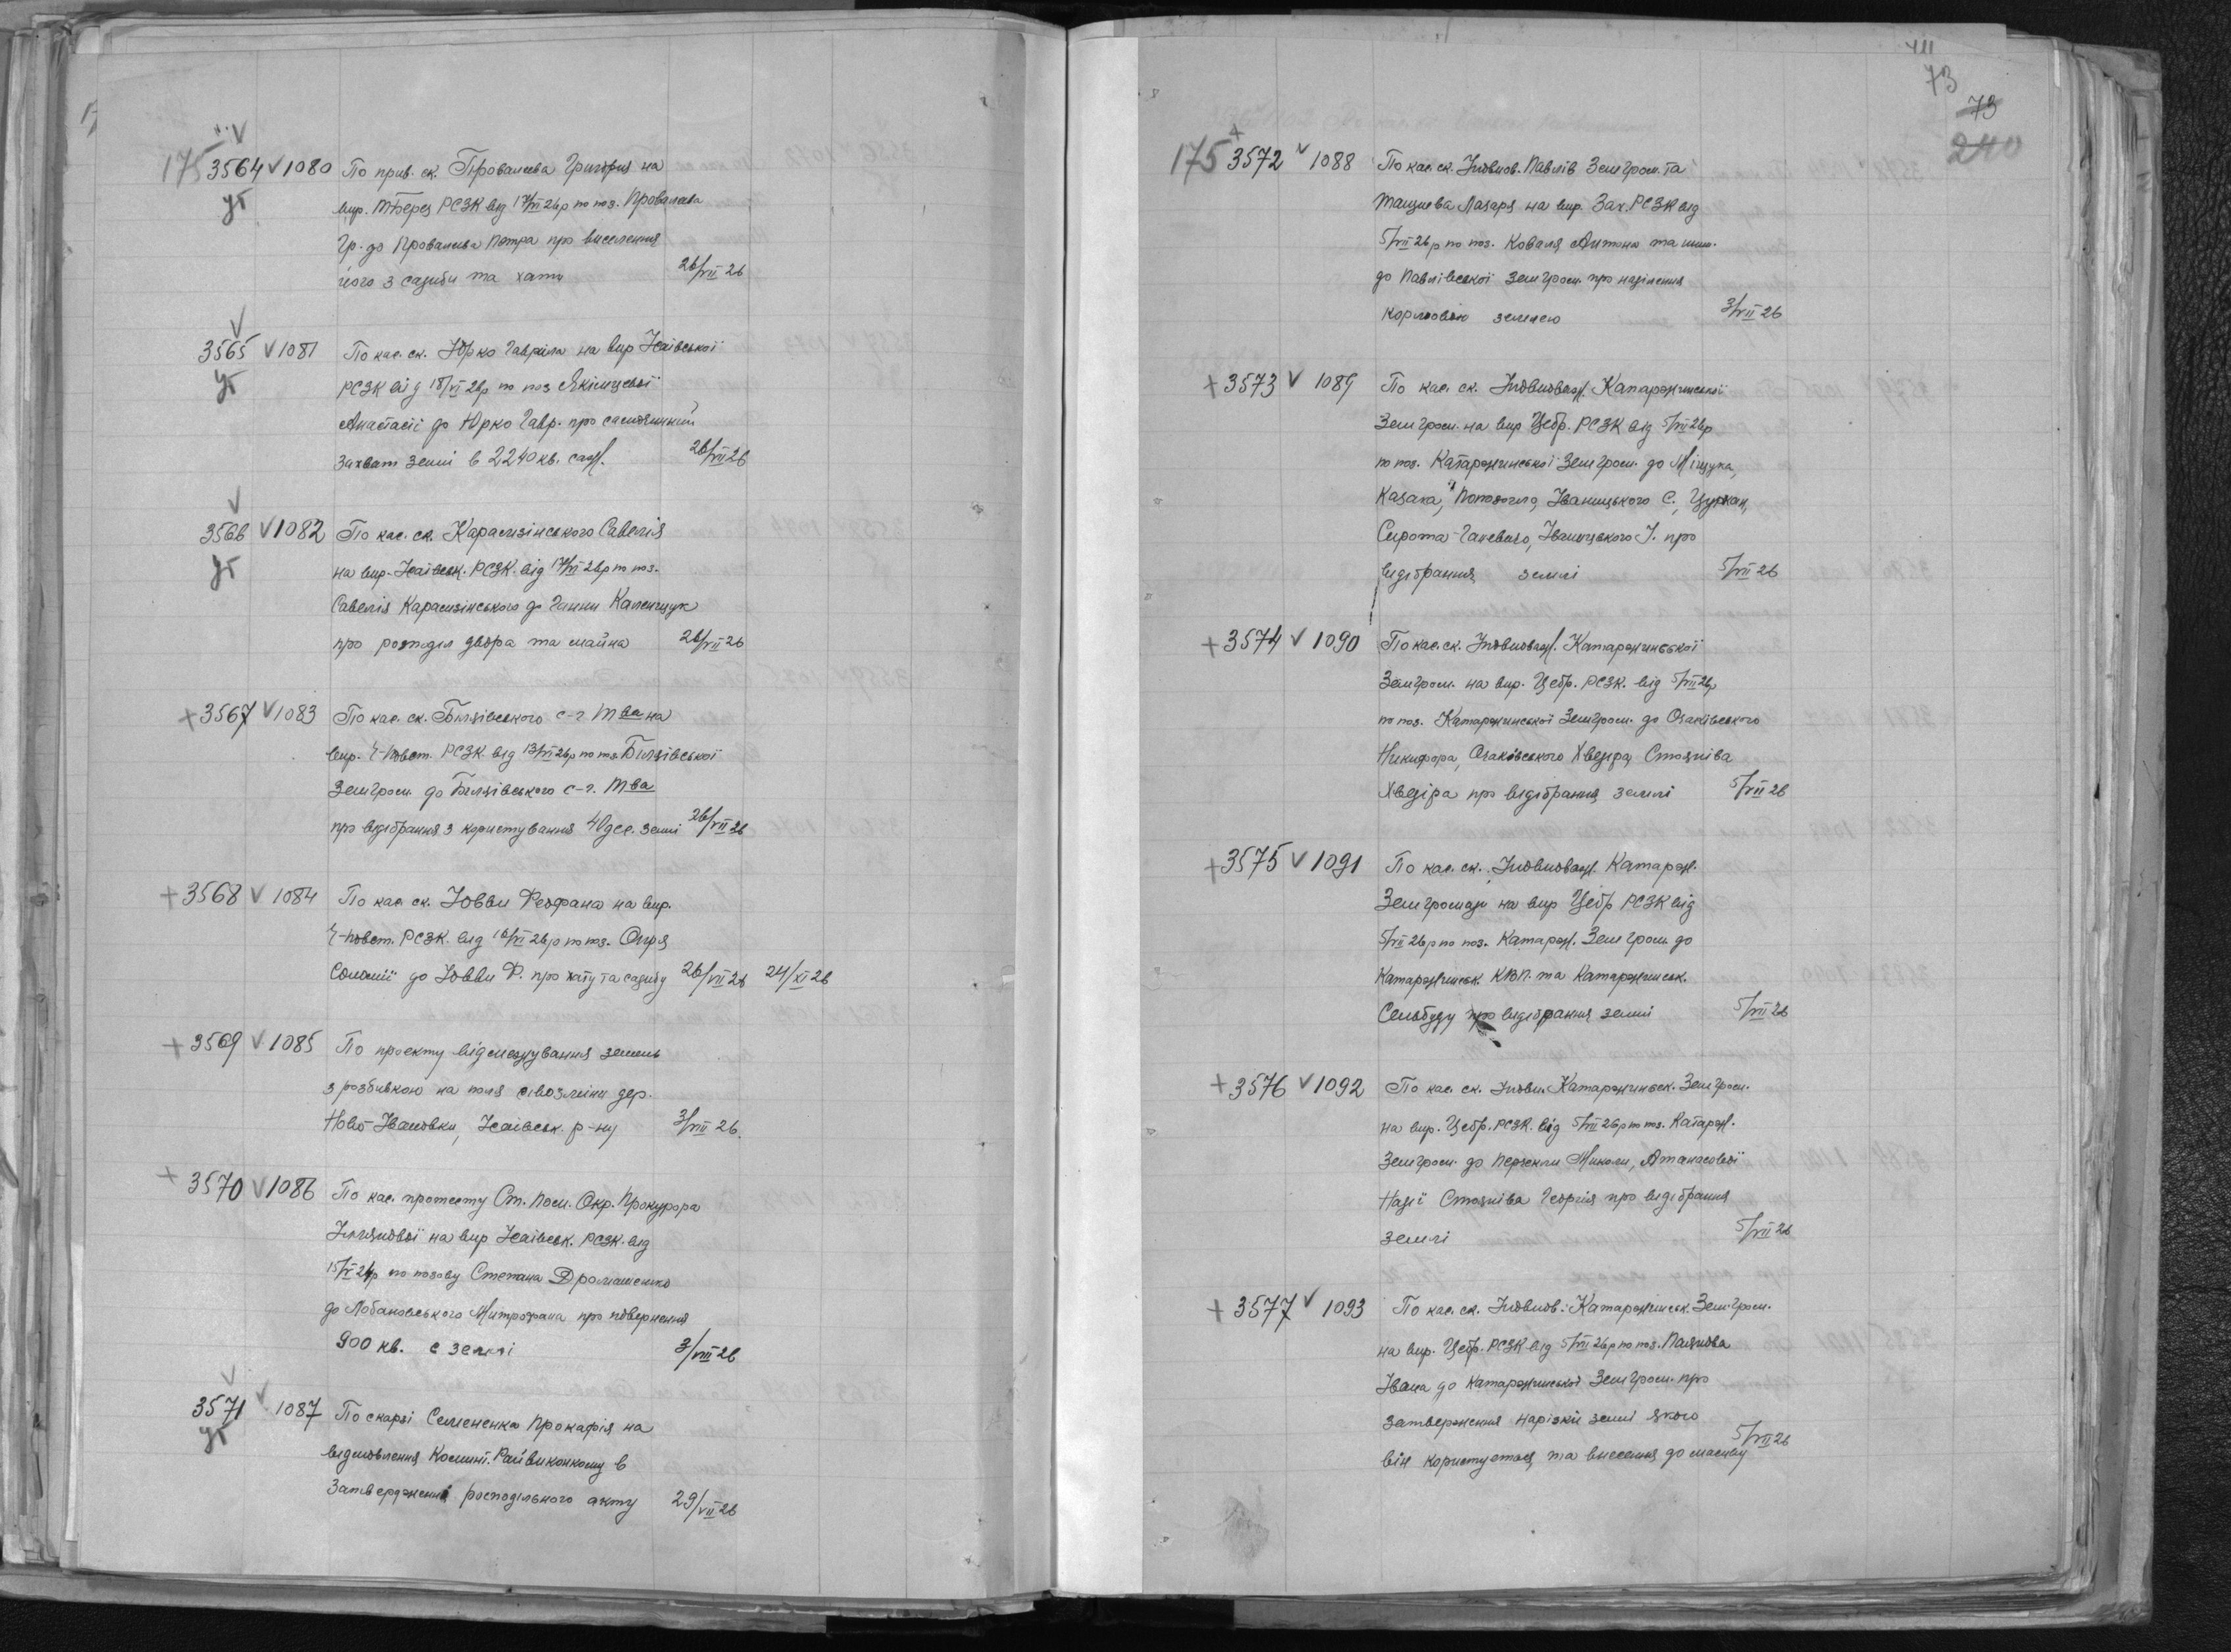 175 3564 V 1080 По прив. ск. Провалєєва Григорія на
вир. ТБерез РСЗК від 17/VI 26р по поз. Провалєєва
Гр. до Провалєєва Петра про виселення
його з садиби та хати 26/VII 26
3565 V 1081 По кас. ск. Юрко Гавріла на вир Ісаівської
УТ РСЗК від 18/VI 26р по поз Якімцевої
Анастасії до Юрко Гавр. про самочинний
захват землі в 2240 кв. саж. 26/VII 26
3566 V 1082 По кас. ск. Карасизінського Савелія
УТ на вир. Ісаівськ. РСЗК. від 17/VI 26р по поз.
Савелія Карасизінського до Ганни Каленщук
про розподіл двора та майна 26/VII 26
+ 3567 V 1083 По кас. ск. Білзівського с-г Тва на
вир. РСЗК від 13/VI 26р по поз Білзівської
Земгром. до Білзівського с-г. Тва
про відібрання з користування 40 дес. землі 26/VII 26
+ 3568 V 1084 По кас. ск. Ховви Феофана на вир.
РСЗК. від 16/VI 26р по поз.
Соломії до Ховви Ф. про хату та садибу 26/VII 26 24/XI 26
+ 3569 V 1085 По проекту відмежування земель
з розбивкою на поля сівозміни дер.
Ново-Івановки, Ісаівськ. р-ну 3/VIII 26.
+ 3570 V 1086 По кас. протесту Ст. Пом. Окр. Прокурора
на вир Ісаівськ. РСЗК. від
15/V 24р по позову Степана Дромашенко
до Лобановського Митрофана про повернення
900 кв. с землі 3/VIII 26
3571 V 1087 По скарзі Семененка Прокафія на
УТ відмовлення Комінт. Райвиконкому в
затвердженні росподільного акту 29/VII 26
73
73
240
175 3572 V 1088 По кас. ск. Уповнов. Павлів Земгром. та
Танцнева Лазаря на вир. Зах. РСЗК від
5/VII 26р по поз. Коваля Антона та инш.
до Павлівської Земгром. про наділення
кормовою землею 3/VII 26
+ 3573 V 1089 По кас. ск. Уповноваж. Катаржинської
Земгром. на вир Цебр. РСЗК від 5/VII 26р
по поз. Катаржинської Земгром. до Міщука,
Казака, Іваницького С., Цуркан,
Сирота-Ганевого, Іваницького І. про
відібрання землі 5/VII 26
+ 3574 V 1090 По кас. ск. Уповноваж. Катаржинської
Земгром. на вир. Цебр. РСЗК. від 5/VII 26р
по поз. Катаржинської Земгром. до Очаківського
Никифора, Очаківського Хведіра, Стояніва
Хведіра про відібрання землі 5/VII 26
+ 3575 V 1091 По кас. ск. Уповноваж. Катарж.
Земгромади на вир Цебр РСЗК від
5/VII 26р по поз. Катарж. Земгром. до
Катаржинськ. КВП. та Катаржинськ.
Сельбуду про відібрання землі 5/VII 26
+ 3576 V 1092 По кас. ск. Уповн. Катаржинськ. Земгром.
на вир. Цебр. РСЗК. від 5/VII 26р по поз. Катарж.
Земгром. до Миколи, Атанасової
Стояніва Георгія про відібрання
землі 5/VII 26
+ 3577 V 1093 По кас. ск. Уповнов. Катаржинськ. Земгром.
на вир. Цебр. РСЗК від 5/VII 26р по поз. Паянова
Івана до Катаржинської Земгром. про
затвердження нарізки землі якою
він користується та внесення до масиву 5/VII 26